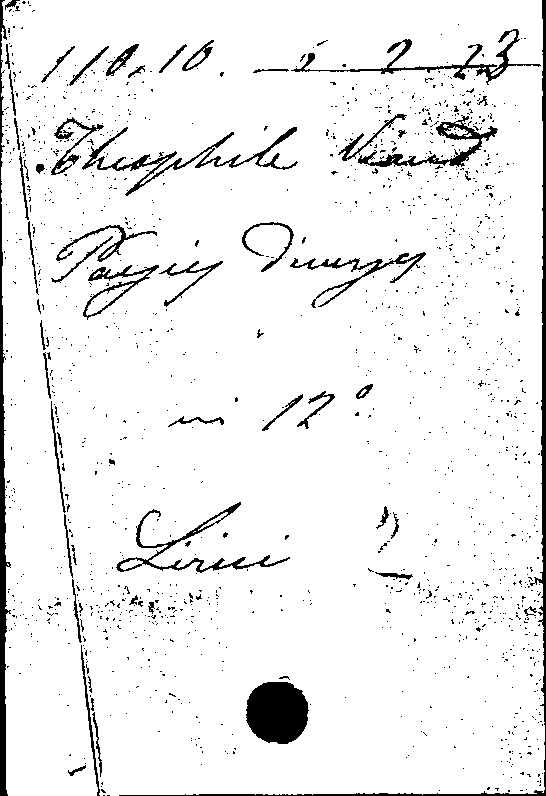 110.10. 5.2.23
Theophile Viaud
Poesies diverses
in 12°
Lirici 2